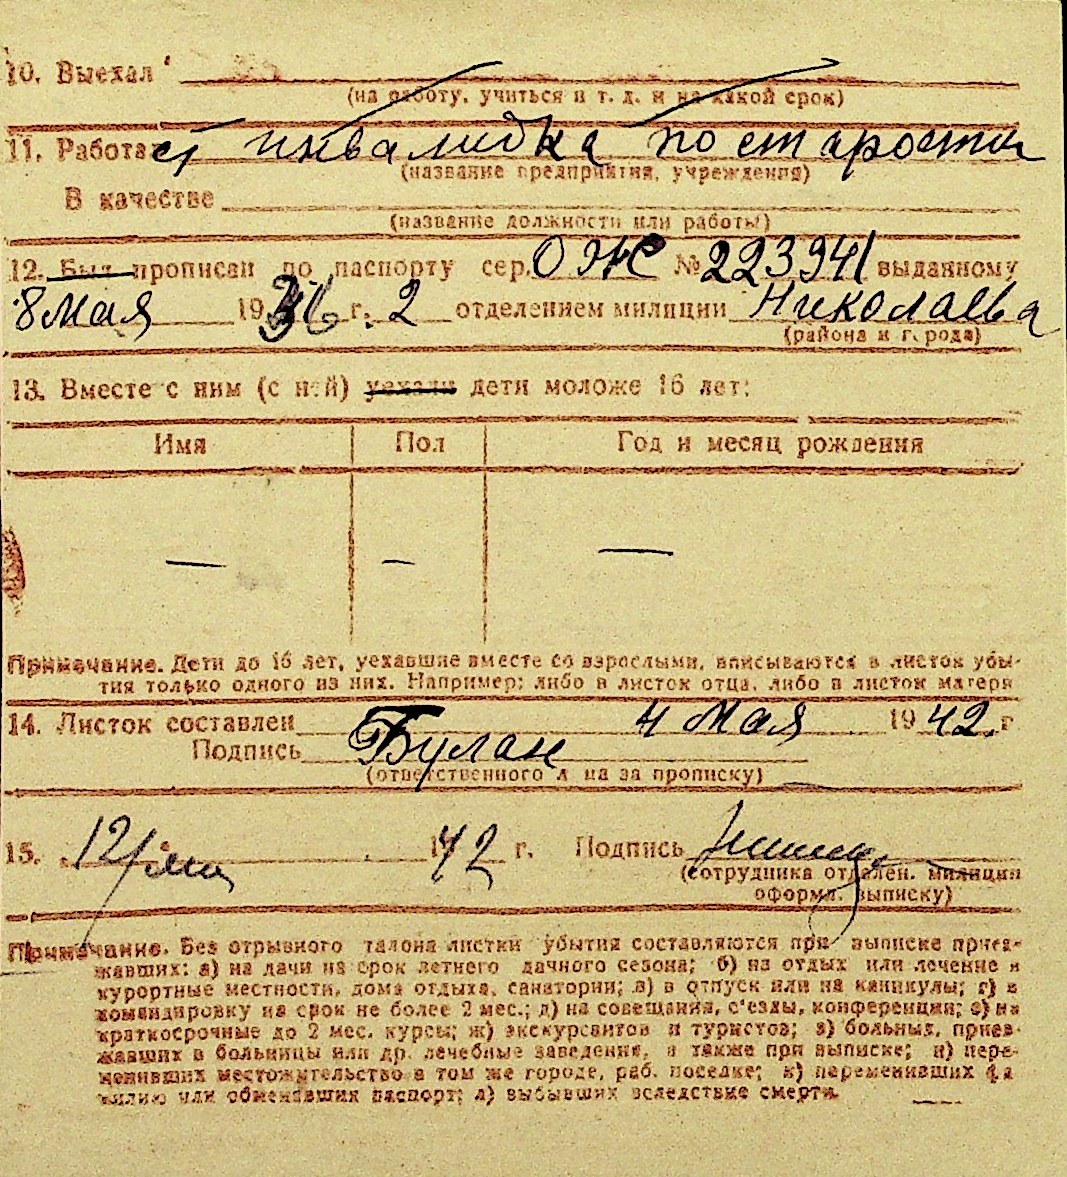 10. Выехал
(на работу, учиться и т. д. и на какой срок)
11. Работает инвалидка по старости
(название предприятия, учреждения)
В качестве
(название должности или работы)
12. Был прописан по паспорту сер. ОЖС № 223941 выданному
8 мая 1936 г. 2 отделением милиции Николаева
(района и города)
13. Вместе с ним (с ней) уехали дети моложе 16 лет:
Имя Пол Год и месяц рождения
— — —
Примечание. Дети до 16 лет, уехавшие вместе со взрослыми, вписываются в листок убы-
тия только одного из них. Например: либо в листок отца, либо в листок матери
14. Листок составлен 4 мая 1942 г.
Подпись Булан
(ответственного л на за прописку)
15. 12/ 1942 г. Подпись
(сотрудника отделен. милиции
оформл. выписку)
Примечание. Без отрывного талона листки убытия составляются при выписке приез-
жавших: а) на дачи на срок летнего дачного сезона; б) на отдых или лечение в
курортные местности, дома отдыха, санатории; в) в отпуск или на каникулы; г) в
командировку на срок не более 2 мес.; д) на совещания, с'езды, конференции; е) на
краткосрочные до 2 мес. курсы; ж) экскурсантов и туристов; з) больных, приез-
жавших в больницы или др. лечебные заведения, а также при выписке; и) пере-
менивших местожительство в том же городе, раб. поселке; к) переменивших фа
милию или обменявших паспорт; л) выбывших вследствие смерти.